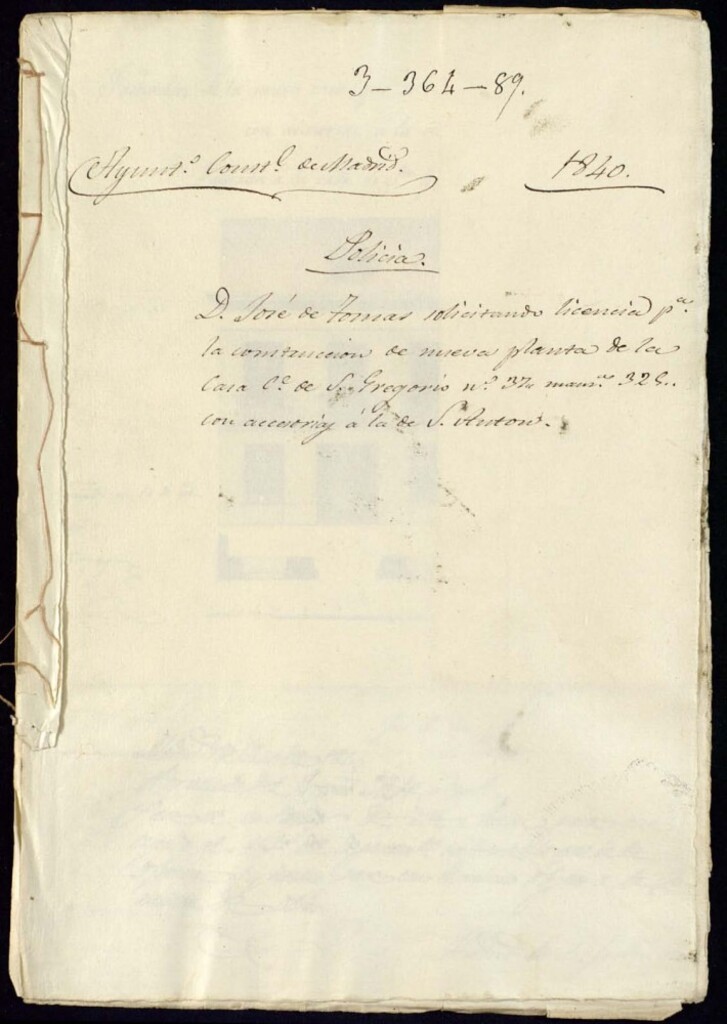 3-364-89.
Ayunt.º Const.l de Madrid.
1840.
Policia.
D. José de Tomas solicitando licencia p.a
la construccion de nueva planta de la
Casa C.e de S. Gregorio n.º 37, manz.a 325.
con accesorias á la de S. Anton.